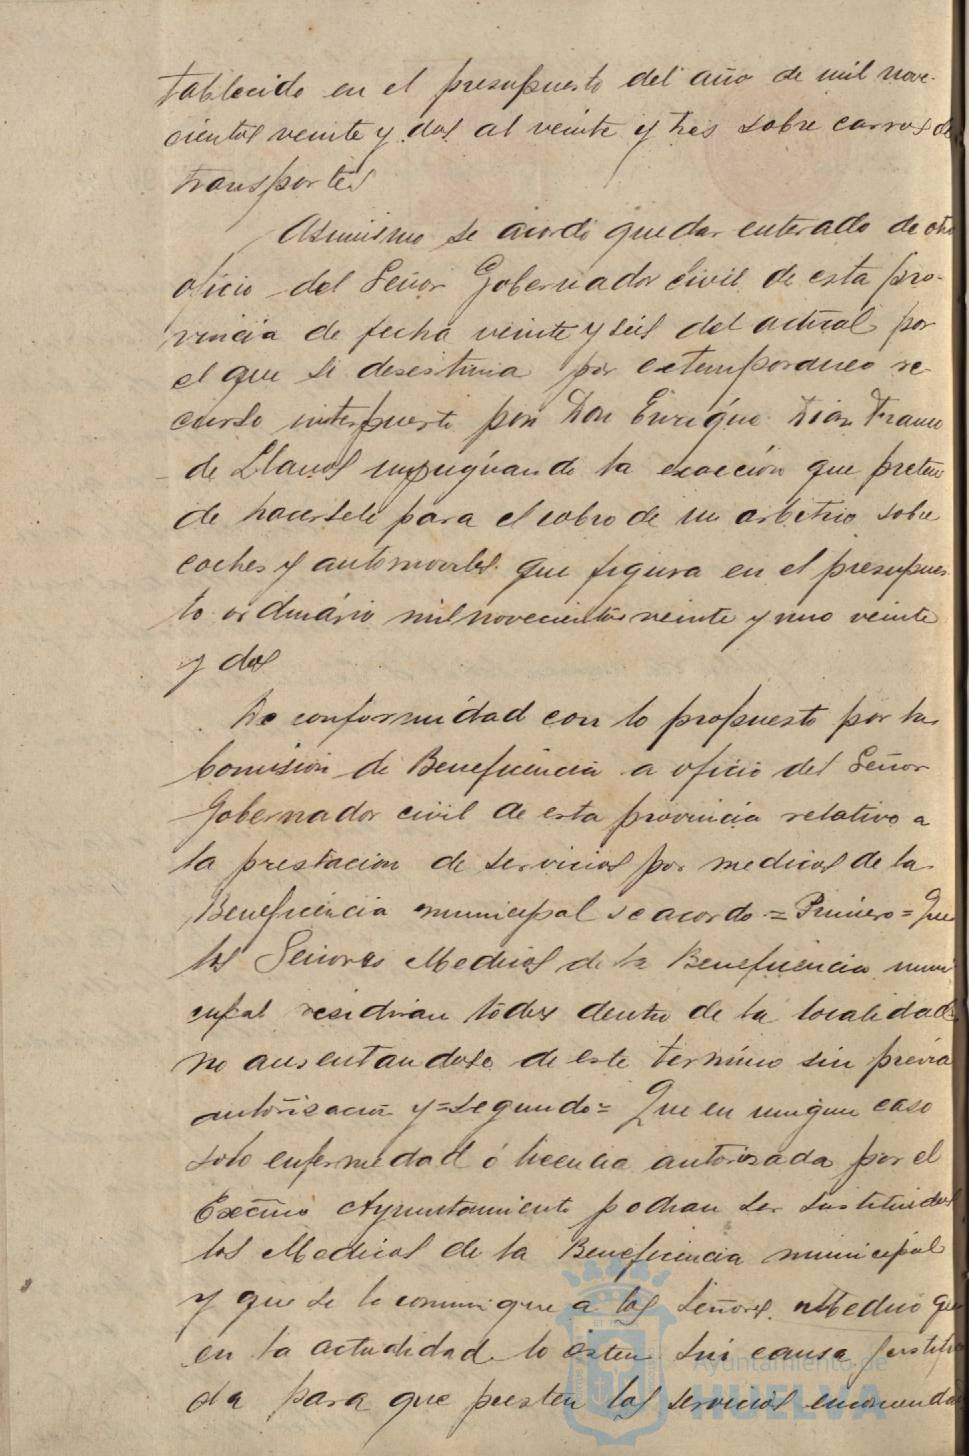 tablecido en el presupuesto del año de mil nove-
cientos veinte y dos al veinte y tres sobre carros de
transportes
Asimismo se acordó quedar enterado de otro
oficio del Señor Gobernador civil de esta pro-
vincia de fecha veinte y seis del actual por
el que se desestima por extemporaneo re-
curso interpuesto por Don Enrique Díaz Franco
de Llanos impugnando la exacción que preten
de hacersele para el cobro de un arbitrio sobre
coches y automoviles que figura en el presupues
to ordinário mil novecientos veinte y uno veinte
y dos
De conformidad con lo propuesto por la
Comisión de Beneficencia a oficio del Señor
Gobernador civil de esta provincia relativo a
la prestacion de servicios por medicos de la
Beneficencia municipal se acordo = Primero = Que
los Señores Medicos de la Beneficencia muni
cipal residirán todos dentro de la localidad
no ausentandose de este termino sin previa
autorizacion y = Segundo = Que en ningun caso
solo enfermedad ó licencia autorizada por el
Excmo Ayuntamiento podran ser sustituidos
los Medicos de la Beneficencia municipal
y que se le comunique a los Señores Medico que
en la actualidad lo esten sin causa justifica
da para que presten los servicios encomenda
Ayuntamiento de
HUELVA